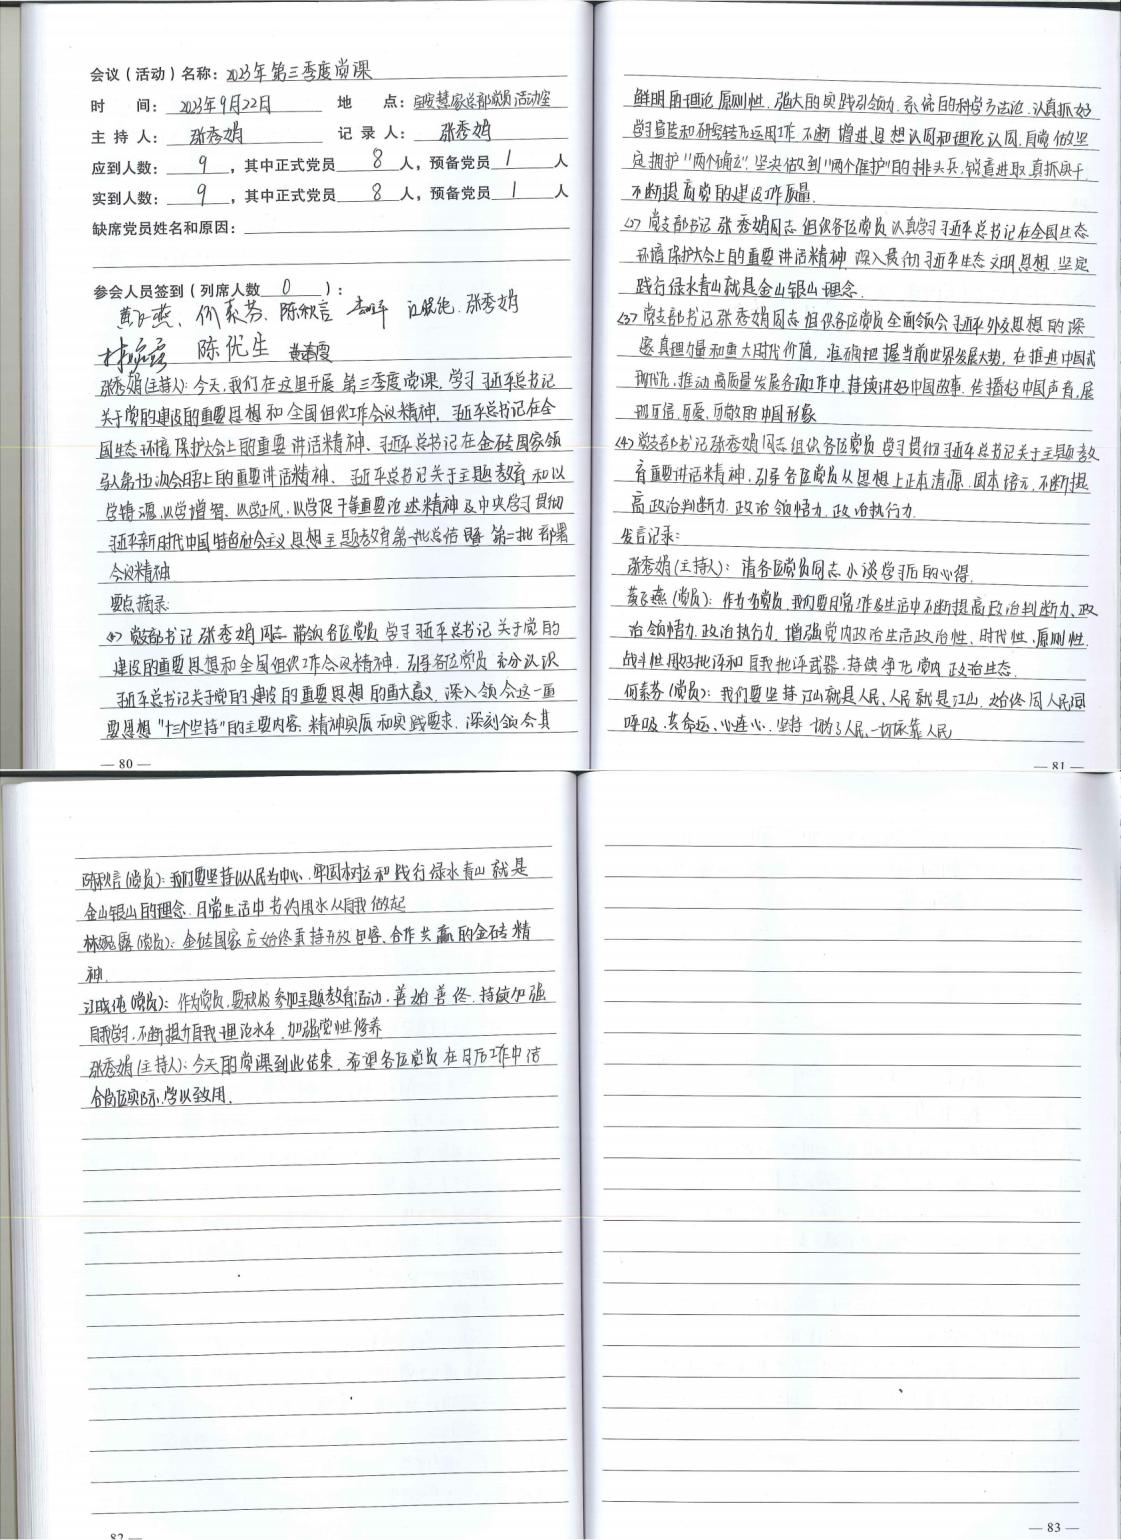 会议（活动）名称：2023年第三季度党课
时 间：2023年9月22日 地 点：党员活动室
主 持 人：张秀娟 记 录 人：张秀娟
应到人数：9，其中正式党员8人，预备党员1人
实到人数：9，其中正式党员8人，预备党员1人
缺席党员姓名和原因：
参会人员签到（列席人数 0 ）：
黄飞燕、何素芬、陈秋言 张秀娟
陈优生
张秀娟(主持人)：今天,我们在这里开展 第三季度党课,学习 习近平总书记
关于党的建设的重要思想和全国组织工作会议精神、习近平总书记在全
国生态环境保护大会上的重要讲话精神、习近平总书记在金砖国家领
导人第十五次会晤上的重要讲话精神、习近平总书记关于主题教育和以
学铸魂、以学增智、以学正风、以学促干等重要论述精神及中央学习贯彻
习近平新时代中国特色社会主义思想主题教育第一批总结暨第二批部署
会议精神
要点摘录:
(1) 党支部书记张秀娟同志带领各位党员学习习近平总书记关于党的
建设的重要思想和全国组织工作会议精神,引导各位党员充分认识
习近平总书记关于党的建设的重要思想的重大意义,深入领会这一重
要思想“十三个坚持”的主要内容、精神实质和实践要求,深刻领会其
— 80 —
鲜明的理论原则性、强大的实践引领力、系统的科学方法论,认真抓好
学习宣传和研究转化运用工作,不断增进思想认同和理论认同,自觉做坚
定拥护“两个确立”、坚决做到“两个维护”的排头兵,锐意进取、真抓实干,
不断提高党的建设工作质量.
(2) 党支部书记张秀娟同志组织各位党员认真学习习近平总书记在全国生态
环境保护大会上的重要讲话精神,深入贯彻习近平生态文明思想,坚定
践行绿水青山就是金山银山理念.
(3) 党支部书记张秀娟同志组织各位党员全面领会习近平外交思想的深
邃真理力量和重大时代价值,准确把握当前世界发展大势,在推进中国式
现代化,推动高质量发展各项工作中,持续讲好中国故事、传播好中国声音,展
现可信、可爱、可敬的中国形象
(4) 党支部书记张秀娟同志组织各位党员学习贯彻习近平总书记关于主题教
育重要讲话精神,引导各位党员从思想上正本清源、固本培元,不断提
高政治判断力、政治领悟力、政治执行力.
发言记录:
张秀娟(主持人)：请各位党员同志小谈学习后的心得.
黄飞燕(党员)：作为党员,我们要日常工作及生活中不断提高政治判断力、政
治领悟力、政治执行力,增强党内政治生活政治性、时代性、原则性、
战斗性,用好批评和自我批评武器,持续净化党内政治生态.
何素芬(党员)：我们要坚持江山就是人民,人民就是江山,始终同人民同
呼吸、共命运、心连心,坚持一切为了人民、一切依靠人民
— 81 —
陈秋言(党员)：我们要坚持以人民为中心,牢固树立和践行绿水青山就是
金山银山的理念,日常生活中节约用水从自我做起
林宛露(党员)：金砖国家应始终秉持开放包容、合作共赢的金砖精
神.
江晓纯(党员)：作为党员,要积极参加主题教育活动,善始善终,持续加强
自我学习,不断提升自我理论水平,加强党性修养
张秀娟(主持人)：今天的党课到此结束,希望各位党员在日后工作中结
合岗位实际,学以致用.
82 —
— 83 —